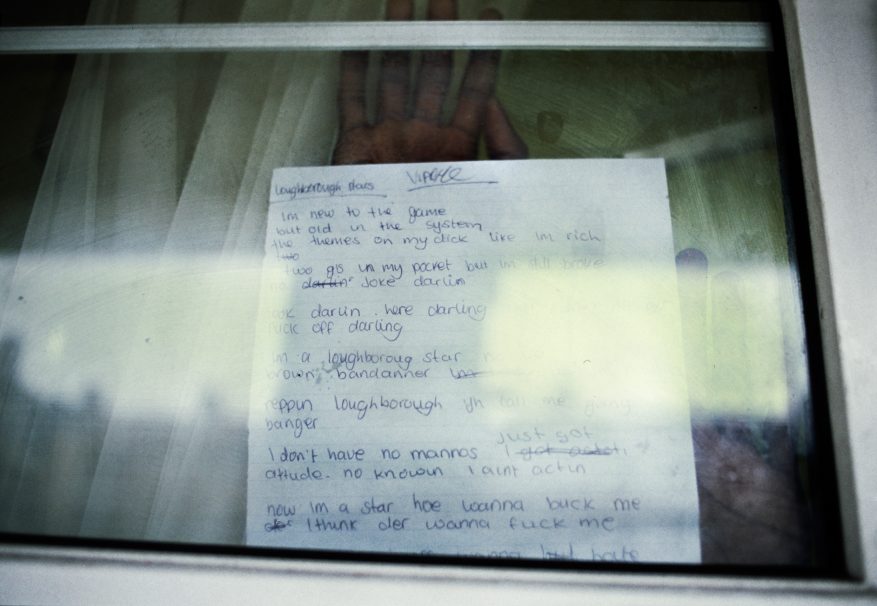 Loughborough stars
Im new to the game
but old in the system
the themes on my dick like im rich
two
two g's in my pocket but im still
no darlin joke darlin
darlin here darling
fuck off darling
Im a loughboroug star
brown bandanner
reppin loughborough yh call me gang
banger
Just got
I don't have no mannos I
attude. no knowin I aint actin
now Im a star hoe wanna buck me
I think der wanna fuck me
wanna